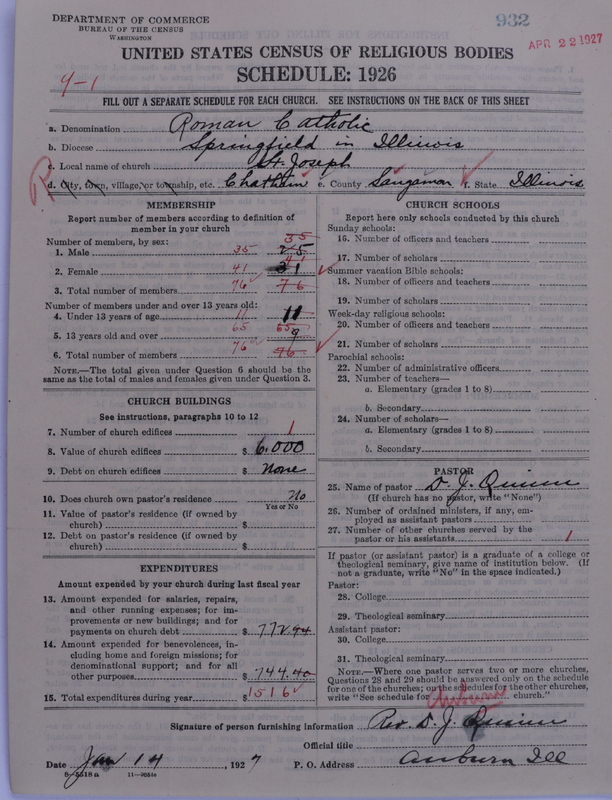 DEPARTMENT OF COMMERCE
BUREAU OF THE CENSUS
WASHINGTON
932
APR 22 1927
UNITED STATES CENSUS OF RELIGIOUS BODIES
SCHEDULE: 1926
4-1
FILL OUT A SEPARATE SCHEDULE FOR EACH CHURCH. SEE INSTRUCTIONS ON THE BACK OF THIS SHEET
a. Denomination Roman Catholic
b. Diocese Springfield in Illinois
c. Local name of church St. Joseph
R
d. City, town, village, or township, etc. Chatham e. County Sangamon f. State Illinois
MEMBERSHIP
Report number of members according to definition of
member in your church
Number of members, by sex:
1. Male 35 25 35
2. Female 41 31 41
3. Total number of members 76 76
Number of members under and over 13 years old:
4. Under 13 years of age 11 11
5. 13 years old and over 65 65 9
6. Total number of members 76 76
NOTE.—The total given under Question 6 should be
the same as the total of males and females given under Question 3.
CHURCH BUILDINGS
See instructions, paragraphs 10 to 12
7. Number of church edifices 1
8. Value of church edifices $6.000
9. Debt on church edifices $ None
10. Does church own pastor's residence No
Yes or No
11. Value of pastor's residence (if owned by
church) $
12. Debt on pastor's residence (if owned by
church) $
EXPENDITURES
Amount expended by your church during last fiscal year
13. Amount expended for salaries, repairs,
and other running expenses; for im-
provements or new buildings; and for
payments on church debt $772.94
14. Amount expended for benevolences, in-
cluding home and foreign missions; for
denominational support; and for all
other purposes $744.40
15. Total expenditures during year $1516
CHURCH SCHOOLS
Report here only schools conducted by this church
Sunday schools:
16. Number of officers and teachers
17. Number of scholars
Summer vacation Bible schools:
18. Number of officers and teachers
19. Number of scholars
Week-day religious schools:
20. Number of officers and teachers
21. Number of scholars
Parochial schools:
22. Number of administrative officers
23. Number of teachers—
a. Elementary (grades 1 to 8)
b. Secondary
24. Number of scholars—
a. Elementary (grades 1 to 8)
b. Secondary
PASTOR
25. Name of pastor D. J. Quinn
(If church has no pastor, write "None")
26. Number of ordained ministers, if any, em-
ployed as assistant pastors
27. Number of other churches served by the
pastor or his assistants 1
If pastor (or assistant pastor) is a graduate of a college or
theological seminary, give name of institution below. (If
not a graduate, write "No" in the space indicated.)
Pastor:
28. College
29. Theological seminary
Assistant pastor:
30. College
31. Theological seminary
NOTE.—Where one pastor serves two or more churches,
Questions 28 and 29 should be answered only on the schedule
for one of the churches; on the schedules for the other churches,
write "See schedule for Auburn church."
Signature of person furnishing information Rev. D. J. Quinn
Official title
Date Jan 14, 1927 P. O. Address Auburn Ill